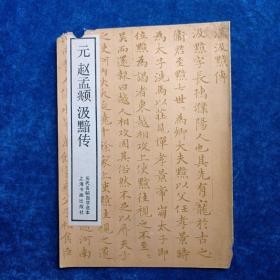 元 赵孟頫 汲黯传
历代名帖自学选本
上海书画出版社
汲黯傳
汲黯字長孺濮陽人也其先有寵於古之
衛君至黯七世世為卿大夫黯以父任孝景時
為太子洗馬以莊見憚孝景帝崩太子即
位黯為謁者東越相攻上使黯往視之不至
至吳而還報曰越人相攻固其俗然不足以辱天子